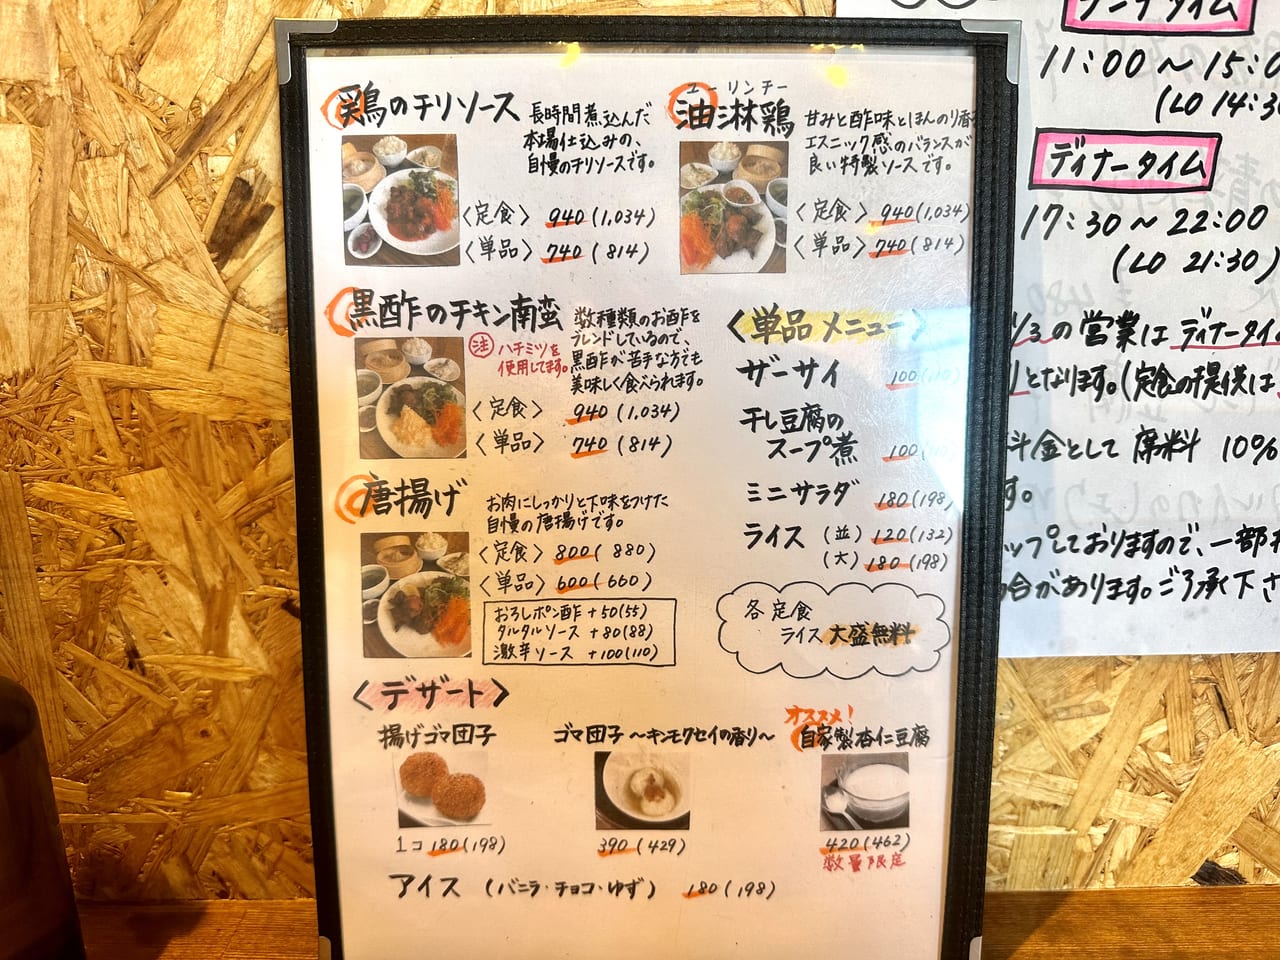 鶏のチリソース
長時間煮込んだ
本場仕込みの、
自慢のチリソースです。
〈定食〉 940(1,034)
〈単品〉 740(814)
ユーリンチー
油淋鶏
甘みと酢味とほんのり香
エスニック感のバランスが
良い特製ソースです。
〈定食〉 940(1,034)
〈単品〉 740(814)
黒酢のチキン南蛮
注 ハチミツを
使用してます。
数種類のお酢を
ブレンドしているので、
黒酢が苦手な方でも
美味しく食べられます。
〈定食〉 940(1,034)
〈単品〉 740(814)
唐揚げ
お肉にしっかりと下味をつけた
自慢の唐揚げです。
〈定食〉 800(880)
〈単品〉 600(660)
おろしポン酢 +50(55)
タルタルソース +80(88)
激辛ソース +100(110)
〈単品メニュー〉
ザーサイ 100(110)
干し豆腐の
スープ煮 100
ミニサラダ 180(198)
ライス (並) 120(132)
(大) 180(198)
各定食
ライス大盛無料
〈デザート〉
揚げゴマ団子
1コ 180(198)
ゴマ団子 〜キンモクセイの香り〜
390(429)
オススメ!
自家製杏仁豆腐
420(462)
数量限定
アイス (バニラ・チョコ・ゆず) 180(198)
ンチタイム
11:00〜15:0
(LO 14:3
ディナータイム
17:30〜22:00
(LO 21:30)
の営業はディナータイム
となります。(定食の提供は
料金として 席料 10%
す。
ップしておりますので、一部
合があります。ご了承下さ